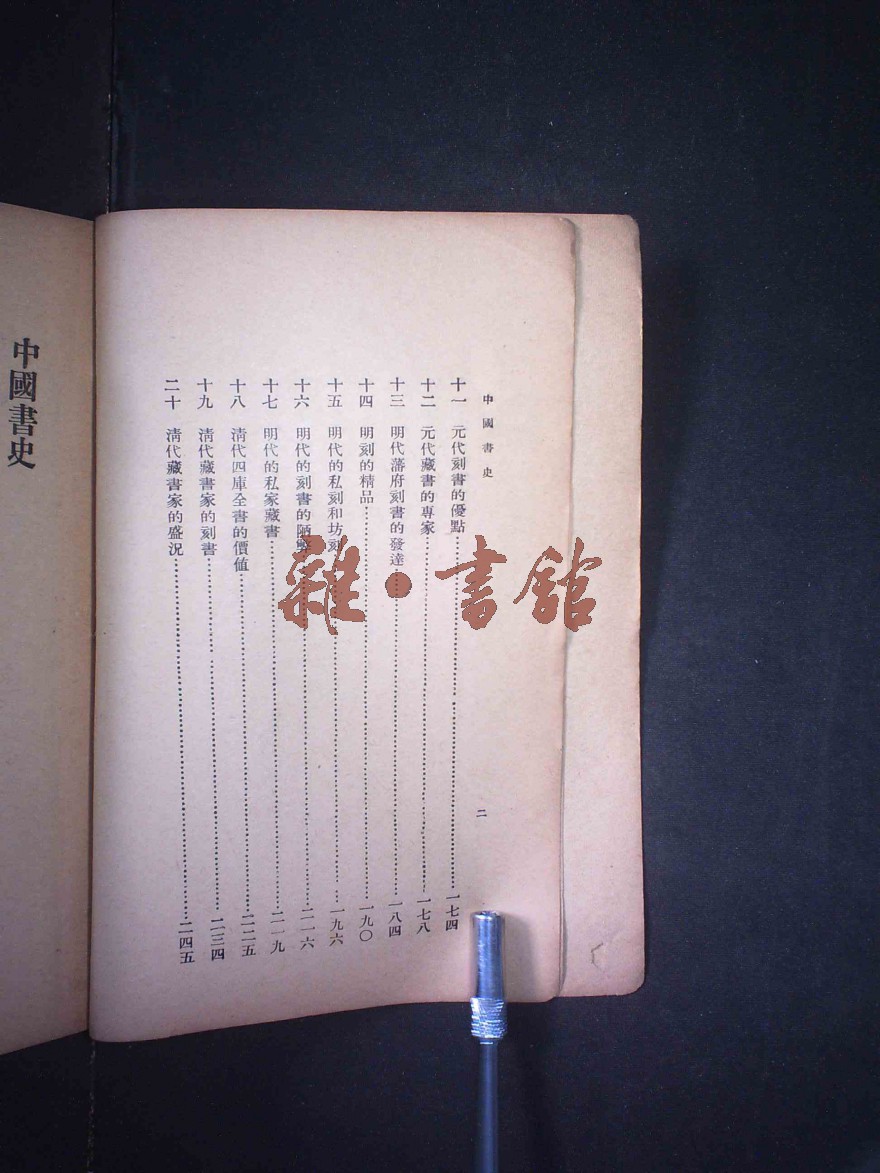 中國書史
二
十一　元代刻書的優點一七四
十二　元代藏書的專家一七八
十三　明代藩府刻書的發達一八四
十四　明刻的精品一九〇
十五　明代的私刻和坊刻一九六
十六　明代的刻書的陋弊二一六
十七　明代的私家藏書二一九
十八　清代四庫全書的價值二二五
十九　清代藏書家的刻書二三四
二十　清代藏書家的盛況二四五
中國書史
雜·書館